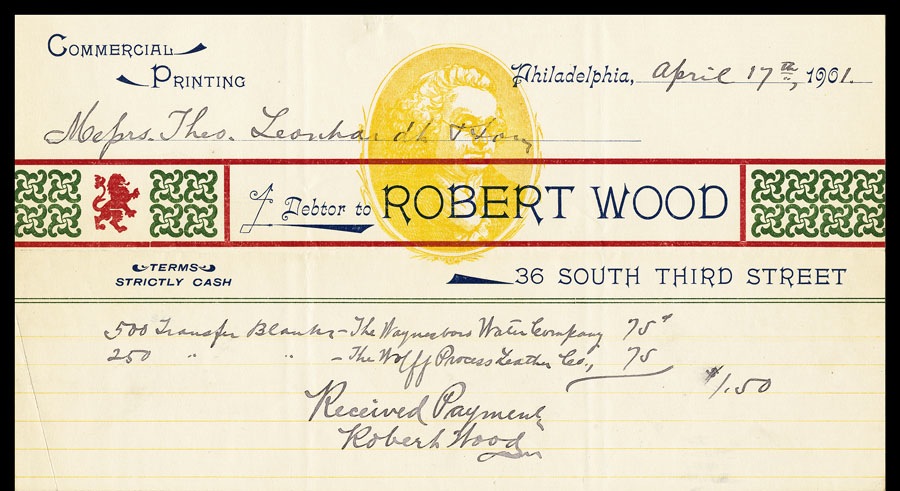 COMMERCIAL
PRINTING
Philadelphia, April 17th, 1901.
Messrs. Theo. Leonhardt & Son
Debtor to ROBERT WOOD
TERMS
STRICTLY CASH
36 SOUTH THIRD STREET
500 Transfer Blanks - The Waynesboro Water Company 75¢
250 " " - The Wolff Process Leather Co., 75
$1.50
Received Payment
Robert Wood